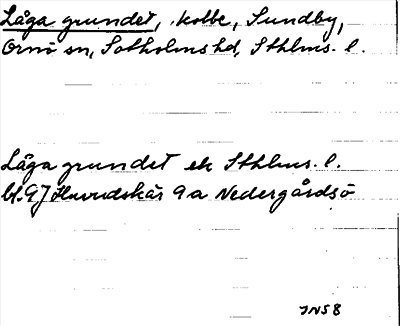 Låga grundet, kobbe, Sundby,
Ornö sn, Sotholms hd, Sthlms. l.
Låga grundet ek Sthlms. l.
bl. 97 Huvudskär 9 a Nedergårdsö
JNS 8